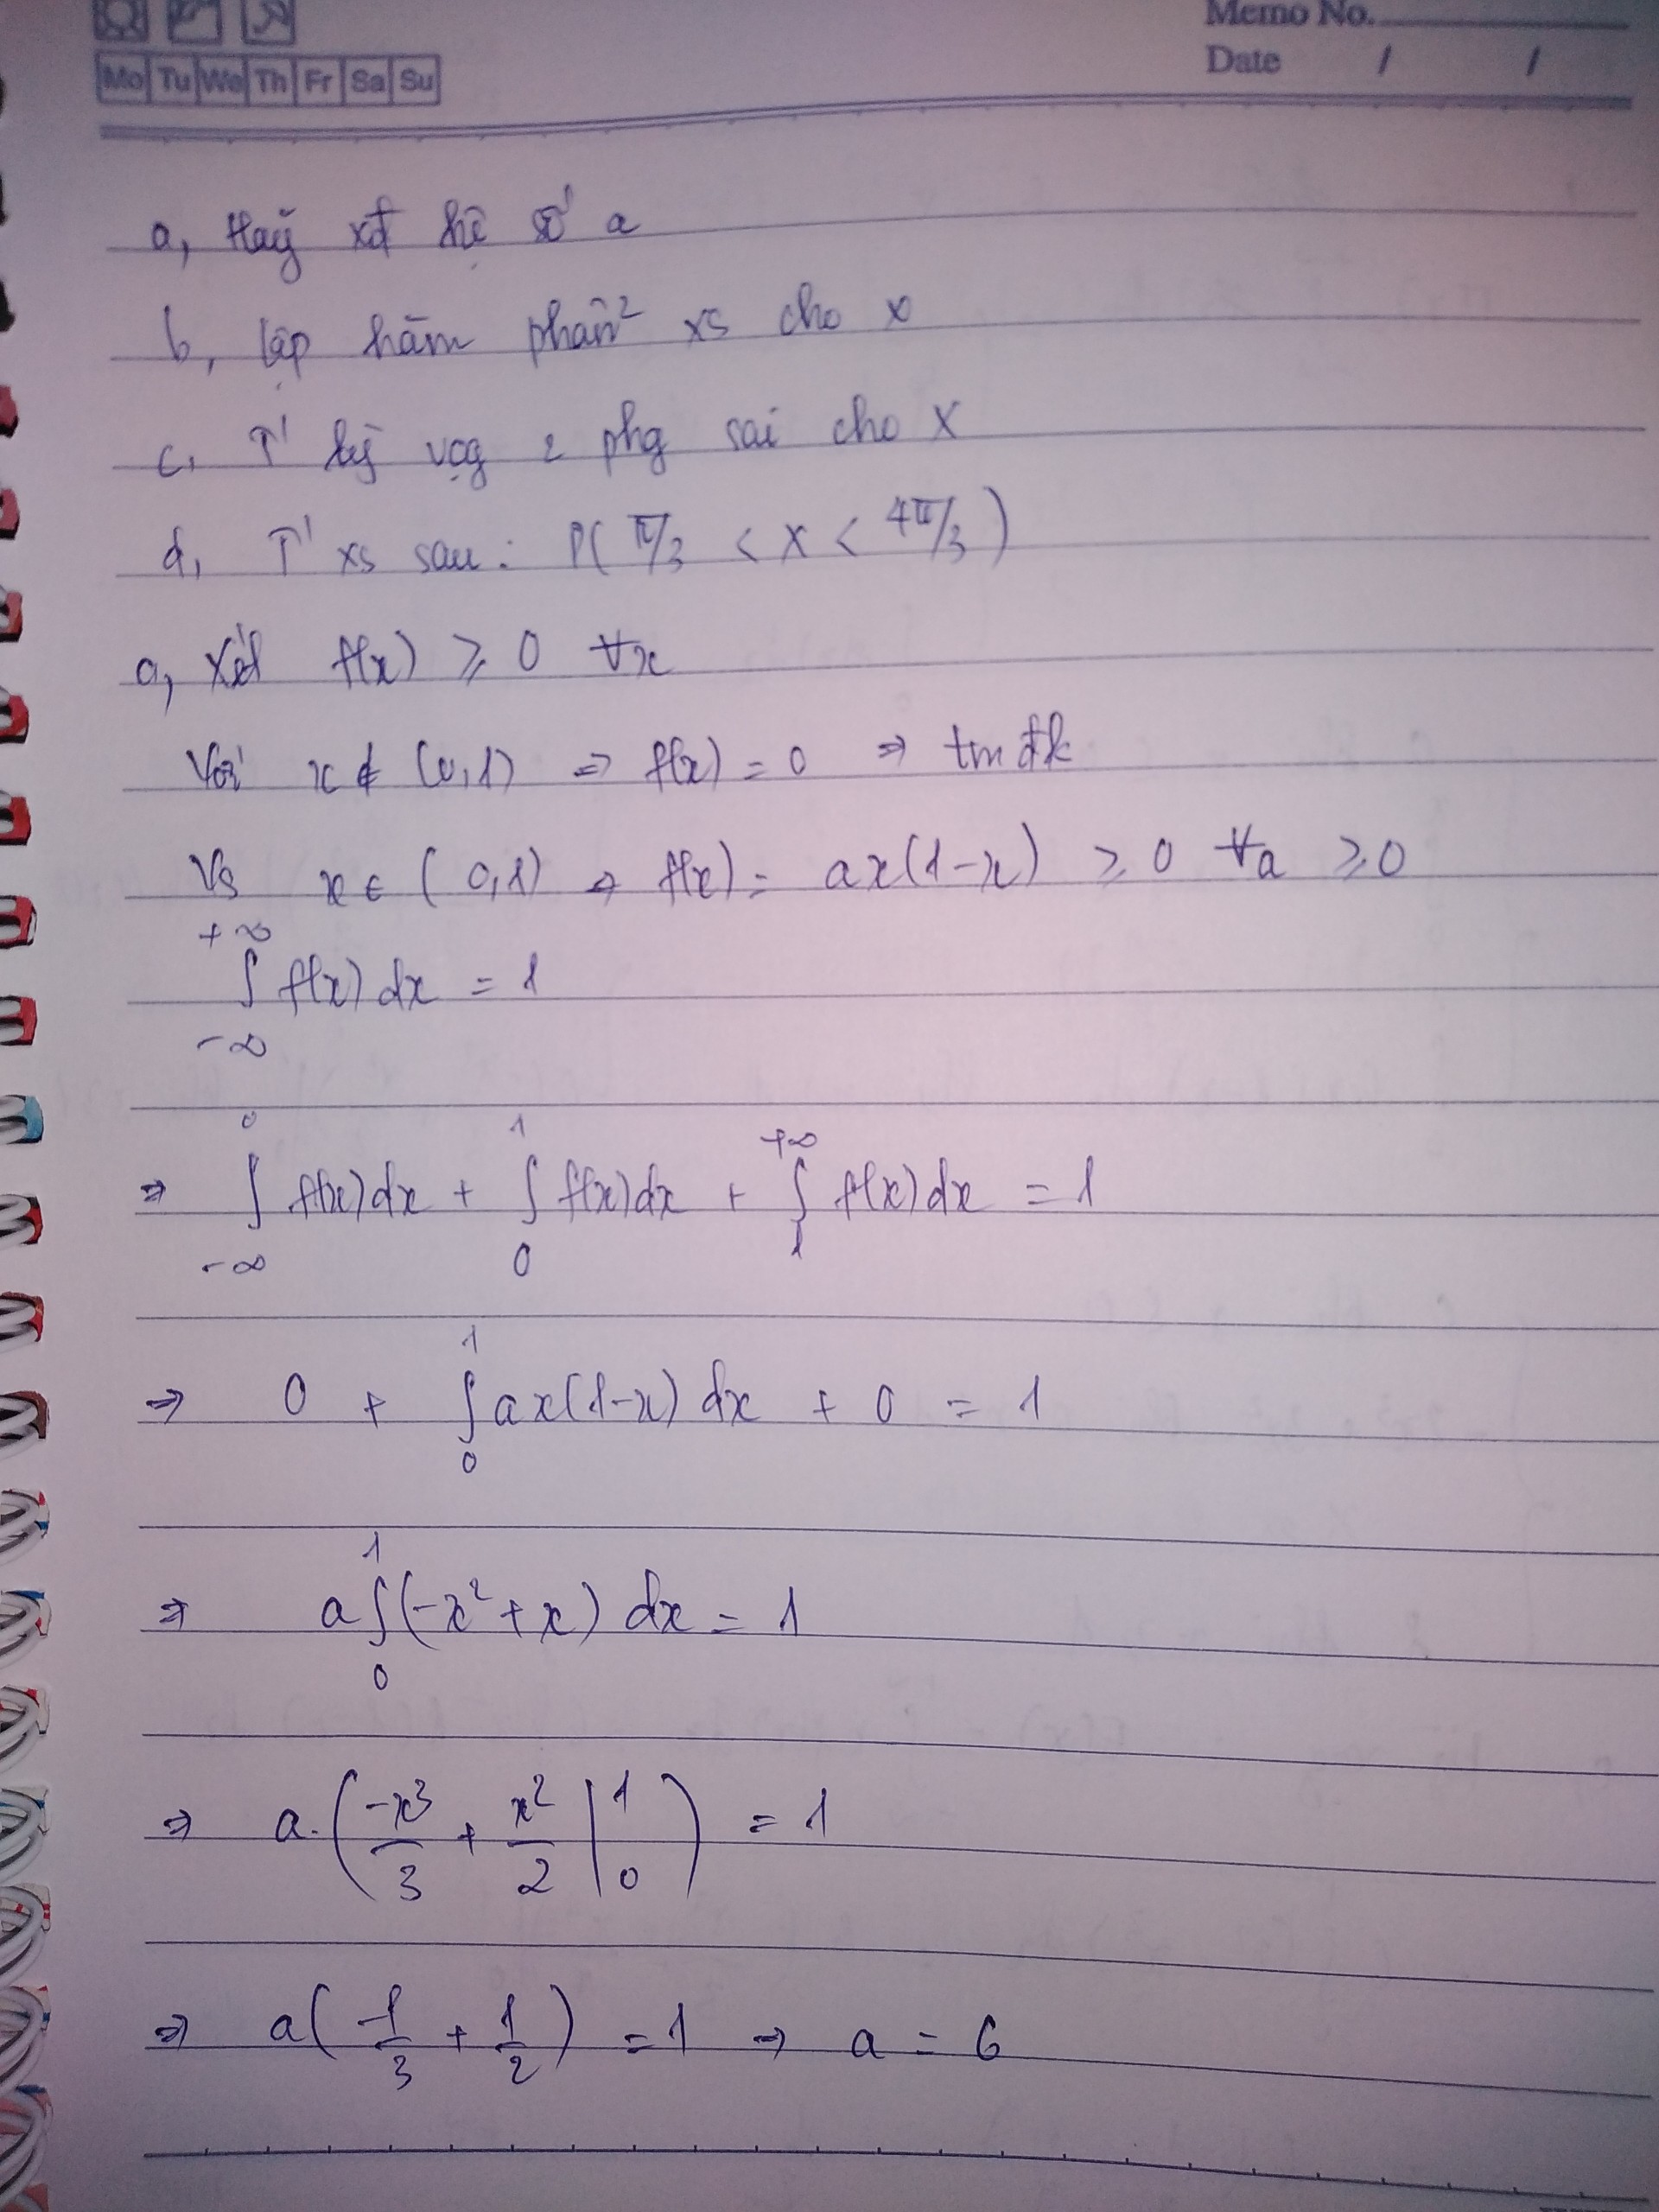 Memo No.
Date / /
Mo Tu We Th Fr Sa Su
a, Hãy xđ hệ số a
b, lập hàm phân² xs cho x
c, T' kỳ vọg 2 phg sai cho X
d, T' xs sau : P( π/3 < X < 4π/3 )
a, Xét f(x) ≥ 0 ∀x
Với x ∉ (0,1) ⇒ f(x) = 0 ⇒ tm đk
Vs x ∈ ( 0,1) ⇒ f(x) = ax(1-x) ≥ 0 ∀a ≥ 0
+∞ ∫ -∞ f(x) dx = 1
⇒ 0 ∫ -∞ f(x)dx + 1 ∫ 0 f(x)dx + +∞ ∫ 1 f(x)dx = 1
⇒ 0 + 1 ∫ 0 ax(1-x) dx + 0 = 1
⇒ a 1 ∫ 0 (-x² + x) dx = 1
⇒ a. ( -x³/3 + x²/2 | 1 0 ) = 1
⇒ a( -1/3 + 1/2 ) = 1 ⇒ a = 6